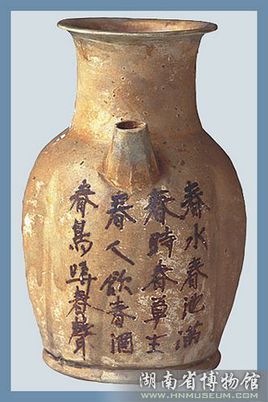 春水春池滿
春時春草生
春人飲春酒
春鳥哢春聲
湖南省博物馆
WWW.HNMUSEUM.COM